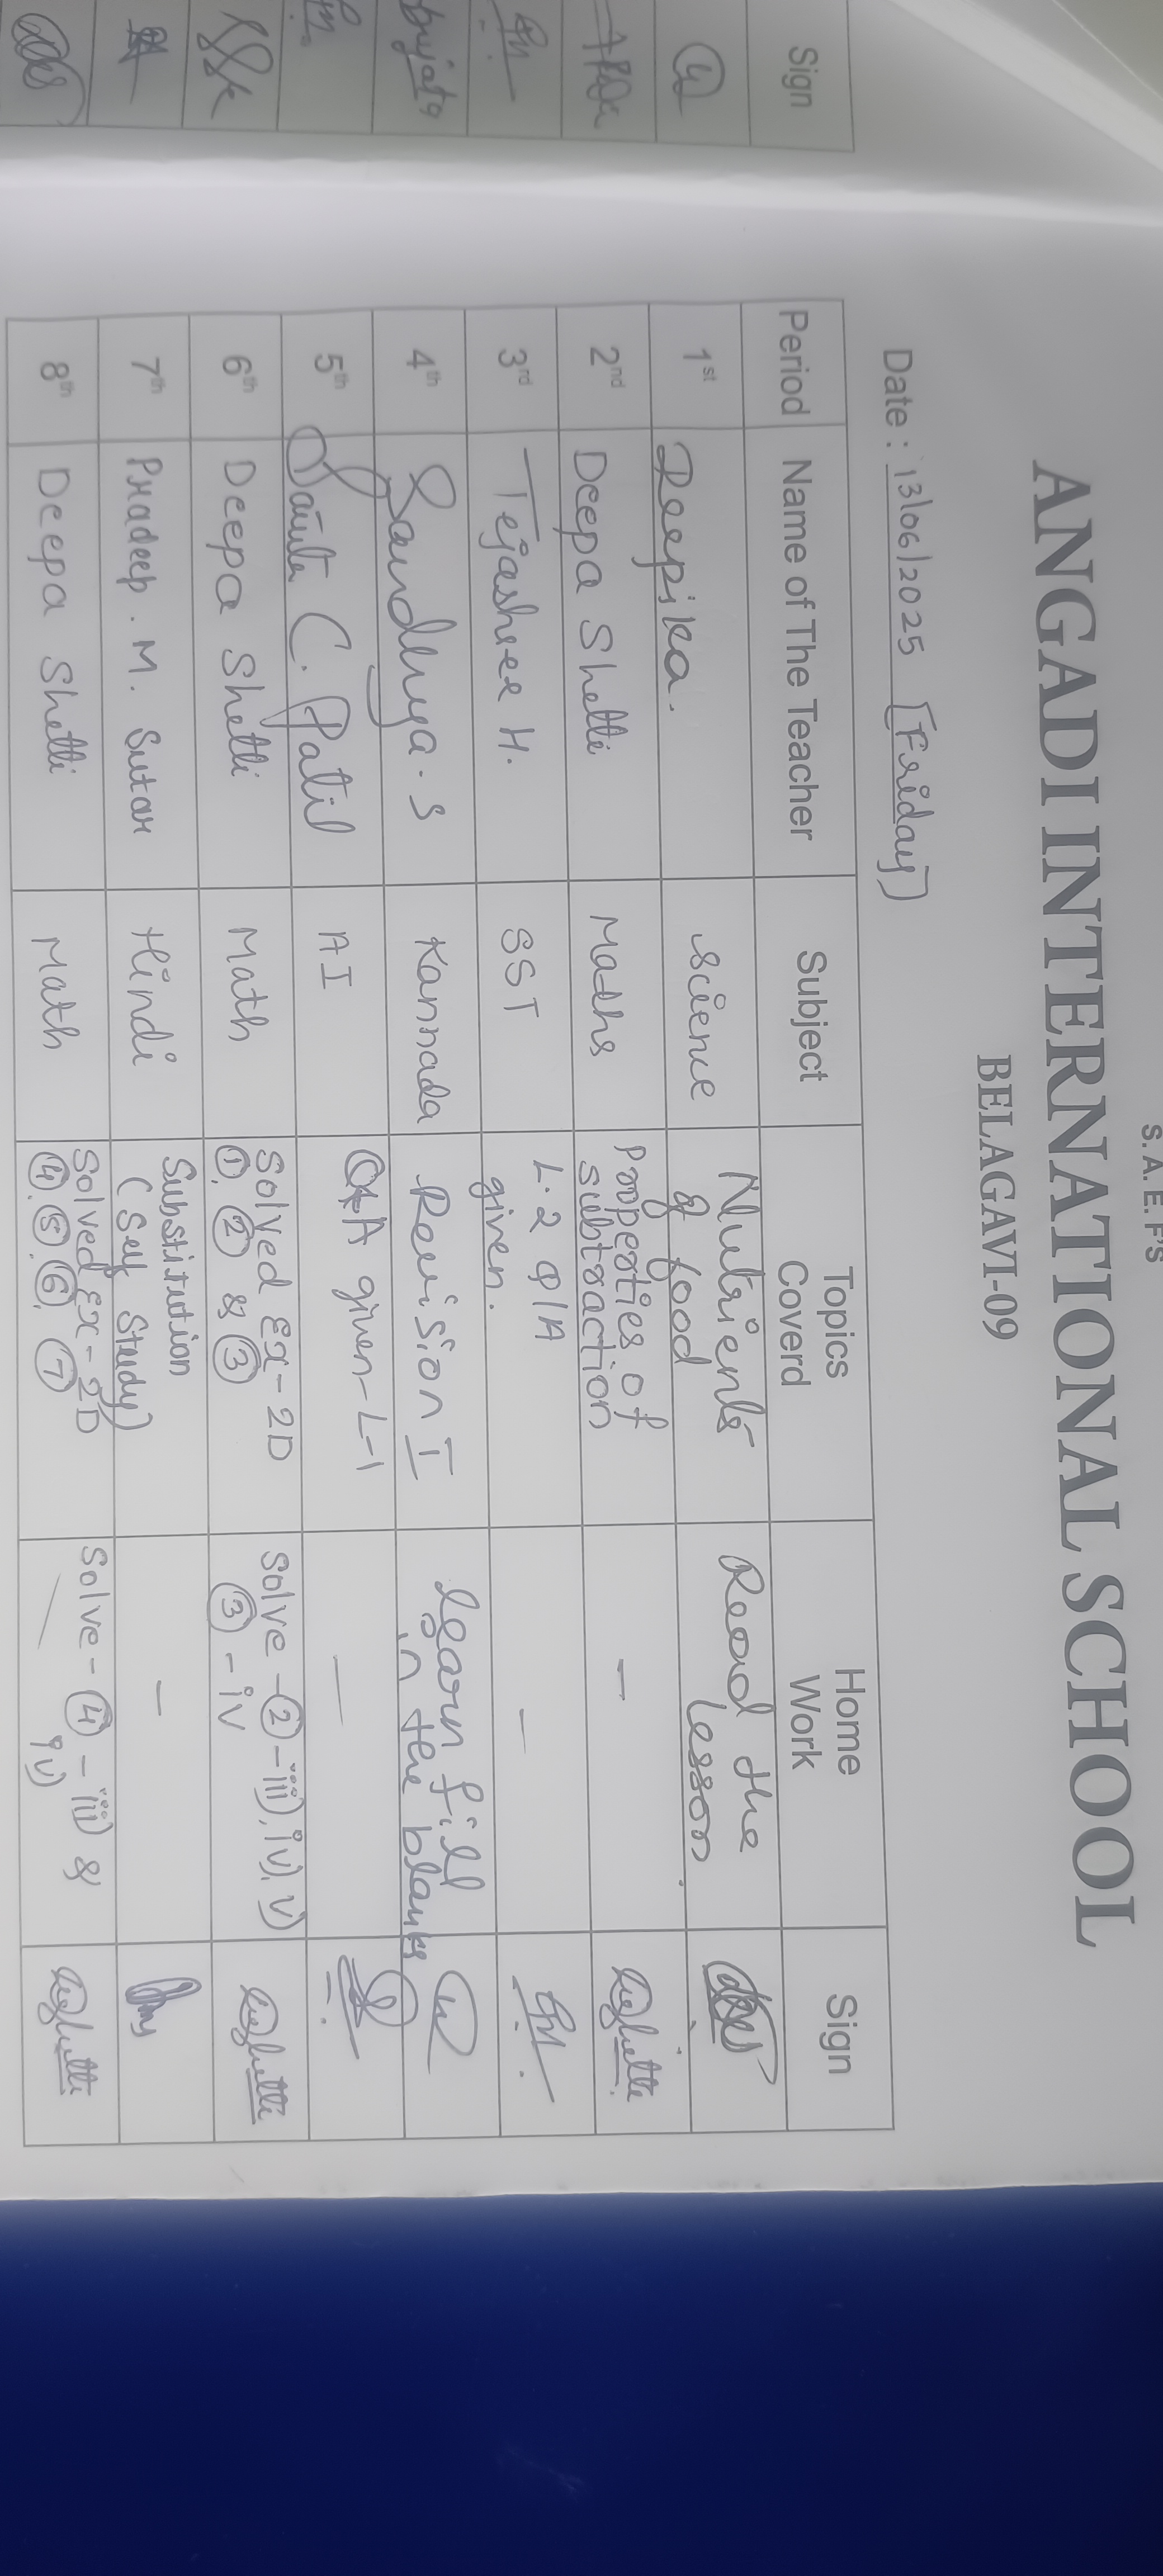 S. A. E. F'S
ANGADI INTERNATIONAL SCHOOL
BELAGAVI-09
Date : 13/06/2025 [Friday]
Sign
Period Name of The Teacher Subject Topics Coverd Home Work Sign
1st Deepika. Science Nutrients of food Read the lesson.
2nd Deepa Shetti Maths Properties of subtraction —
3rd Tejashree H. SST L.2 Q/A given. —
4th Sandhya.S Kannada Revision I learn fill in the blanks
5th C. Patil AI Q&A given-L-1 —
6th Deepa Shetti Math Solved Ex-2D ①, ② & ③ Solve -②-iii), iv), v) ③-iv
7th Pradeep. M. Sutar Hindi Substitution (Self Study) —
8th Deepa Shetti Math Solved Ex-2D ④, ⑤, ⑥, ⑦ Solve-④-iii) & iv)